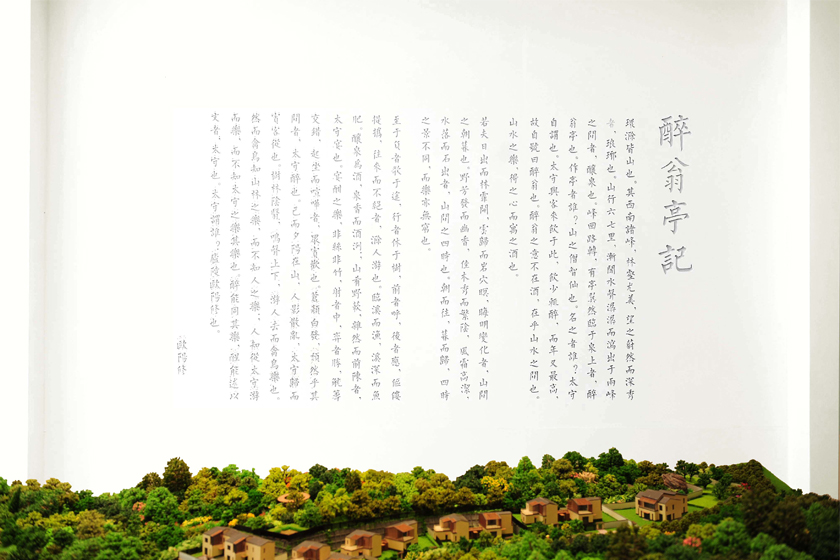 醉翁亭記
環滁皆山也。其西南諸峰,林壑尤美,望之蔚然而深秀
者,琅琊也。山行六七里,漸聞水聲潺潺而瀉出于兩峰
之間者,釀泉也。峰回路轉,有亭翼然臨于泉上者,醉
翁亭也。作亭者誰?山之僧智仙也。名之者誰?太守
自謂也。太守與客來飲于此,飲少輒醉,而年又最高,
故自號曰醉翁也。醉翁之意不在酒,在乎山水之間也。
山水之樂,得之心而寓之酒也。
若夫日出而林霏開,雲歸而岩穴暝,晦明變化者,山間
之朝暮也。野芳發而幽香,佳木秀而繁陰,風霜高潔,
水落而石出者,山間之四時也。朝而往,暮而歸,四時
之景不同,而樂亦無窮也。
至于負者歌于途,行者休于樹,前者呼,後者應,傴僂
提攜,往來而不絕者,滁人游也。臨溪而漁,溪深而魚
肥。釀泉爲酒,泉香而酒洌,山肴野蔌,雜然而前陳者,
太守宴也。宴酣之樂,非絲非竹,射者中,弈者勝,觥籌
交錯,起坐而喧嘩者,衆賓歡也。蒼顏白發,頹然乎其
間者,太守醉也。已而夕陽在山,人影散亂,太守歸而
賓客從也。樹林陰翳,鳴聲上下,游人去而禽鳥樂也。
然而禽鳥知山林之樂,而不知人之樂;人知從太守游
而樂,而不知太守之樂其樂也。醉能同其樂,醒能述以
文者,太守也。太守謂誰?廬陵歐陽修也。
歐陽修